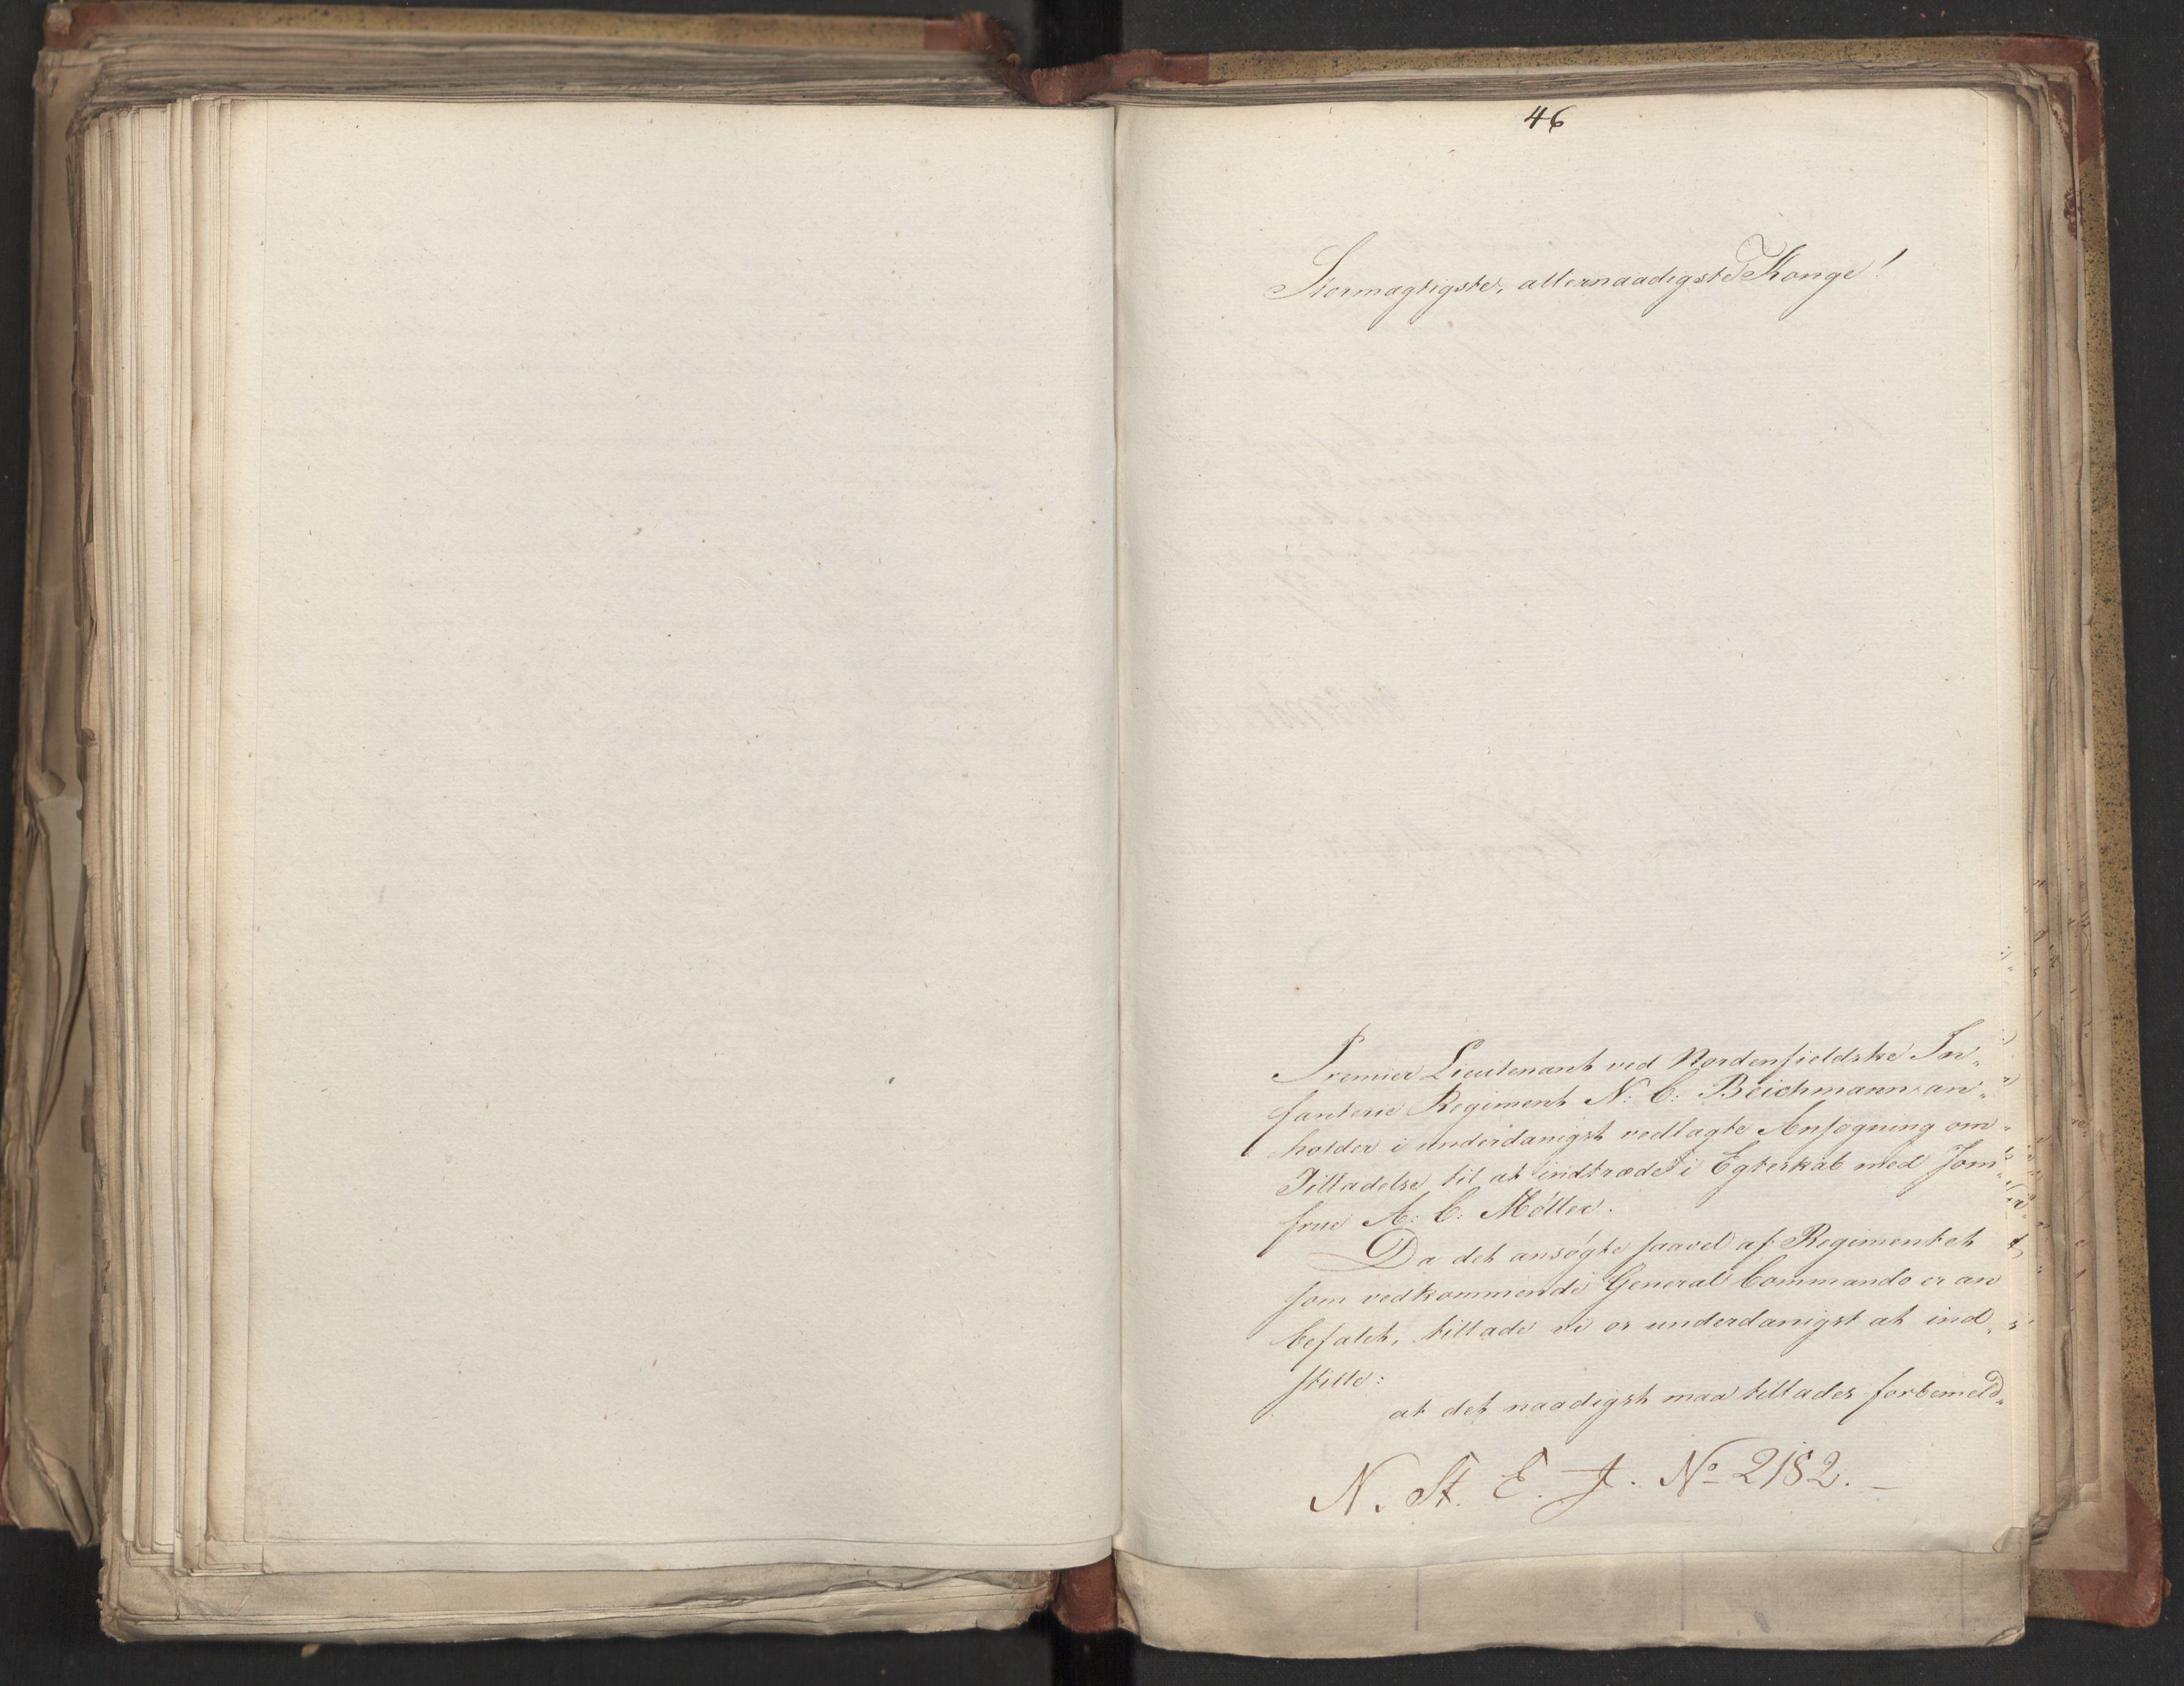 46
Stormægtigste, allernaadigste Konge!
Premier Lieutenant ved Nordenfieldske In„
fanterie Regiment N: C: Beichmann an„
holder i underdanigst vedlagte Ansøgning om
Tilladelse til at indtræde i Egteskab med Jom„
frue A: C: Møller.
Da det ansøgte saavel af Regimentet
som vedkommende General Commando er an
befalet, tillade vi os underdanigst at ind„
stille:
at det naadigst maa tillades forbemeld„
N. St. E. J. No 2182. –